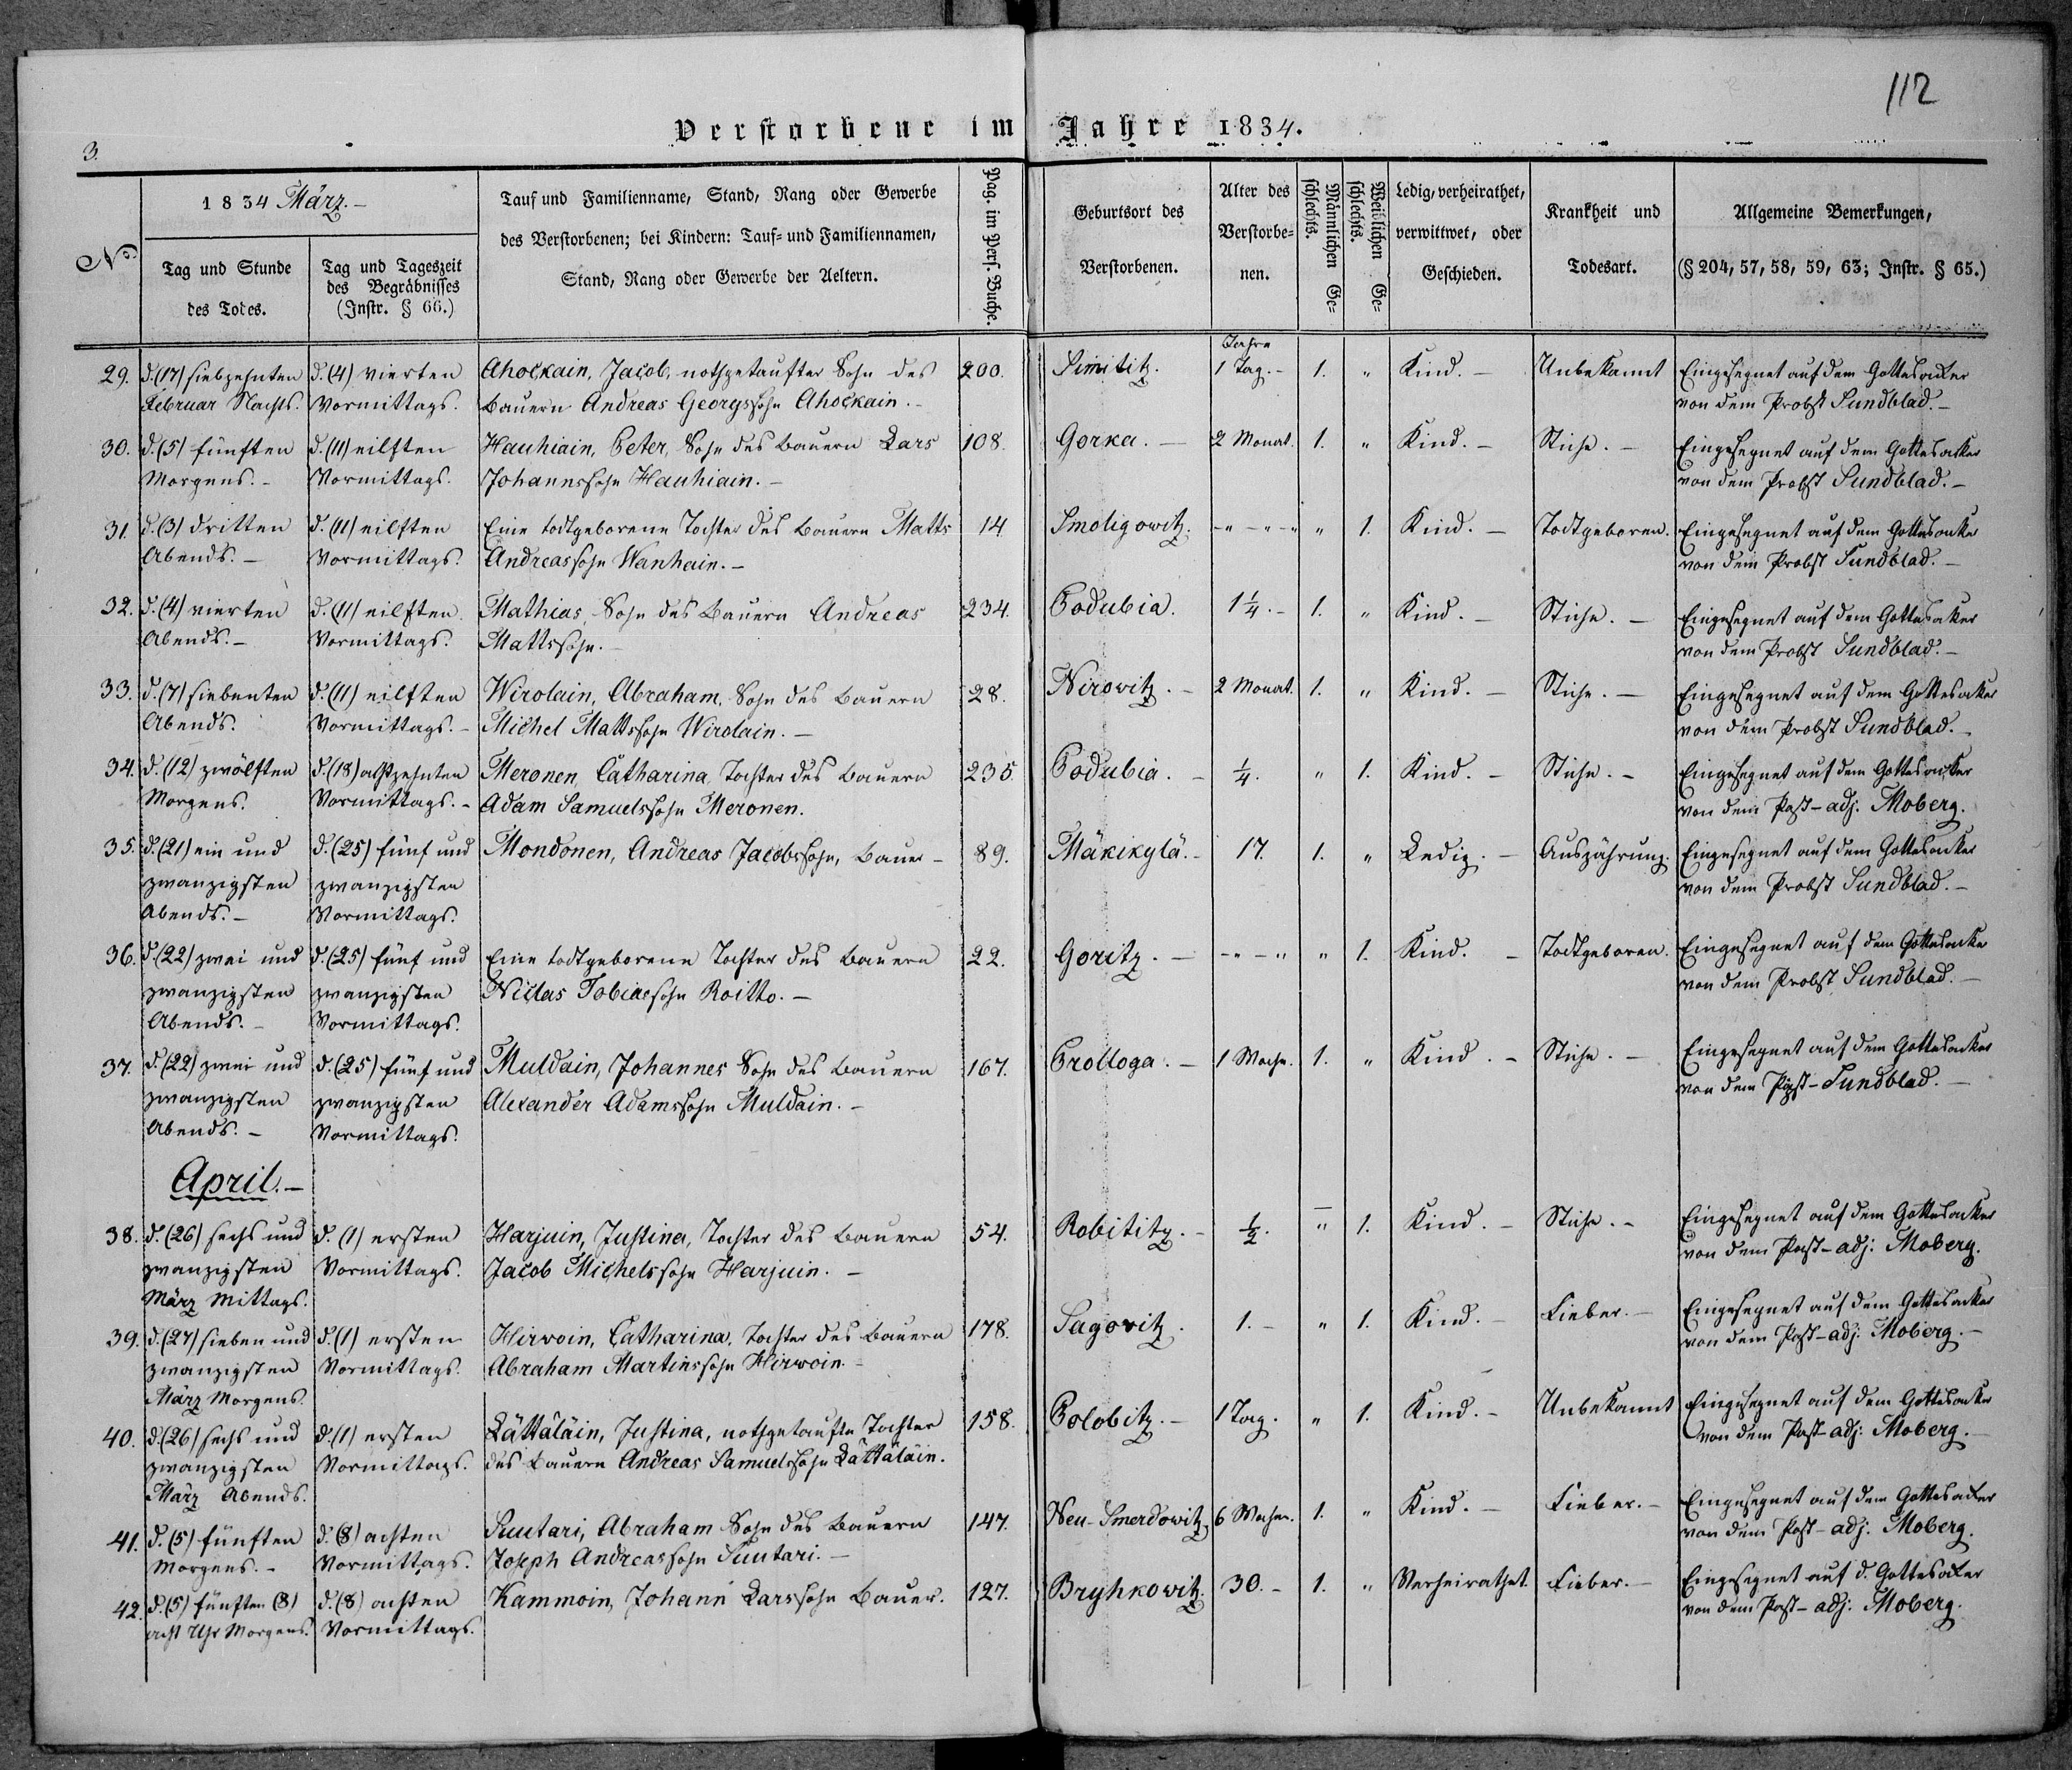 112
Verstorbene im Jahre 1834.
3.
No.
1834 März.-
Tag und Stunde des Todes.
Tag und Tageszeit des Begräbnisses (Instr. § 66.)
Tauf und Familienname, Stand, Rang oder Gewerbe
des Verstorbenen; bei Kindern: Tauf= und Familiennamen,
Stand, Rang oder Gewerbe der Aeltern.
Pag. im Pers. Buche.
Geburtsort des Verstorbenen.
Alter des Verstorbe=nen.
Männlichen Ge=schlechts.
Weiblichen Ge=schlechts.
Ledig, verheirathet, verwittwet, oder Geschieden.
Krankheit und Todesart.
Allgemeine Bemerkungen,
(§ 204, 57, 58, 59, 63; Instr. § 65.)
Jahre
29. d. (17) siebzehnten d. (4) vierten Ahockain, Jacob, nothgetaufter Sohn des 200. Simititz. 1 Tag.- 1. " Kind.- Unbekannt Eingesegnet auf dem Gottesacker
Februar Nachts. Vormittags. Bauern Andreas Georgssohn Ahockain.- von dem Probst Sundblad.-
30. d. (5) fünften d. (11) eilften Hauhiain, Peter, Sohn des Bauern Lars 108. Gorka.- 2 Monat. 1. " Kind.- Stiche.- Eingesegnet auf dem Gottesacker
Morgens.- Vormittags. Johannssohn Hauhiain.- von dem Probst Sundblad.-
31. d. (3) dritten d. (11) eilften Eine todtgeborene Tochter des Bauern Matts 14. Smoligowitz. -"-"-" " 1. Kind.- Todtgeboren. Eingesegnet auf dem Gottesacker
Abends.- Vormittags. Andreassohn Wanhain.- von dem Probst Sundblad.-
32. d. (4) vierten d. (11) eilften Mathias, Sohn des Bauern Andreas 234. Podubia. 1¼.- 1. " Kind.- Stiche.- Eingesegnet auf dem Gottesacker
Abends.- Vormittags. Mattssohn.- von dem Probst Sundblad.-
33. d. (7) siebenten d. (11) eilften Wirolain, Abraham, Sohn des Bauern 28. Wirowitz.- 2 Monat. 1. " Kind.- Stiche.- Eingesegnet auf dem Gottesacker
Abends. Vormittags.- Michel Mattssohn Wirolain.- von dem Probst Sundblad.-
34. d. (12) zwölften d. (18) achtzehnten Meronen, Catharina, Tochter des Bauern 235. Podubia.- ¼. " 1. Kind.- Stiche.- Eingesegnet auf dem Gottesacker
Morgens. Vormittags.- Adam Samuelssohn Meronen. von dem Past-adj: Moberg.
35. d. (21) ein und d. (25) fünf und Mondonen, Andreas Jacobssohn, Bauer- 89. Mäkikylä.- 17. 1. " Ledig.- Auszährung. Eingesegnet auf dem Gottesacker
zwanzigsten zwanzigsten von dem Probst Sundblad.-
Abends.- Vormittags.
36. d. (22) zwei und d. (25) fünf und Eine todtgeborene Tochter des Bauern 22. Goritz.- -"-" " 1. Kind.- Todtgeboren. Eingesegnet auf dem Gottesacker
zwanzigsten zwanzigsten Niclas Tobiassohn Roitto.- von dem Probst Sundblad.-
Abends.- Vormittags.
37. d. (22) zwei und d. (25) fünf und Muldain, Johannes Sohn des Bauern 167. Prolloga.- 1 Woche. 1. " Kind.- Stiche.- Eingesegnet auf dem Gottesacker
zwanzigsten zwanzigsten Alexander Adamssohn Muldain.- von dem Sundblad.-
Abends.- Vormittags.
April.-
38. d. (26) sechs und d. (1) ersten Harjuin, Justina, Tochter des Bauern 54. Robititz.- ½. " 1. Kind.- Stiche.- Eingesegnet auf dem Gottesacker
zwanzigsten Vormittags. Jacob Michelssohn Harjuin.- von dem Past-adj: Moberg.
März Mittags.
39. d. (27) sieben und d. (1) ersten Hirwoin, Catharina, Tochter des Bauern 178. Sagovitz. 1.- " 1. Kind.- Fieber.- Eingesegnet auf dem Gottesacker
zwanzigsten Vormittags. Abraham Martinssohn Hirwoin.- von dem Past-adj: Moberg.-
März Morgens.
40. d. (26) sechs und d. (1) ersten Lättäläin, Justina, nothgetaufte Tochter 158. Polobitz.- 1 Tag. " 1. Kind.- Unbekannt Eingesegnet auf dem Gottesacker
zwanzigsten Vormittags. des Bauern Andreas Samuelssohn Lättäläin. von dem Past-adj: Moberg.-
März Abends.
41. d. (5) fünften d. (8) achten Suutari, Abraham Sohn des Bauern 147. Neu-Smerdowitz. 6 Wochen. 1. " Kind.- Fieber.- Eingesegnet auf dem Gottesacker
Morgens.- Vormittags. Joseph Andreassohn Suutari.- von dem Past-adj. Moberg.
42. d. (5) fünften (8) d. (8) achten Kammoin, Johann Larssohn Bauer. 127. Bryhkowitz. 30.- 1. " Verheirathet. Fieber.- Eingesegnet auf d. Gottesacker
acht Uhr Morgens. Vormittags. von dem Past-adj: Moberg.